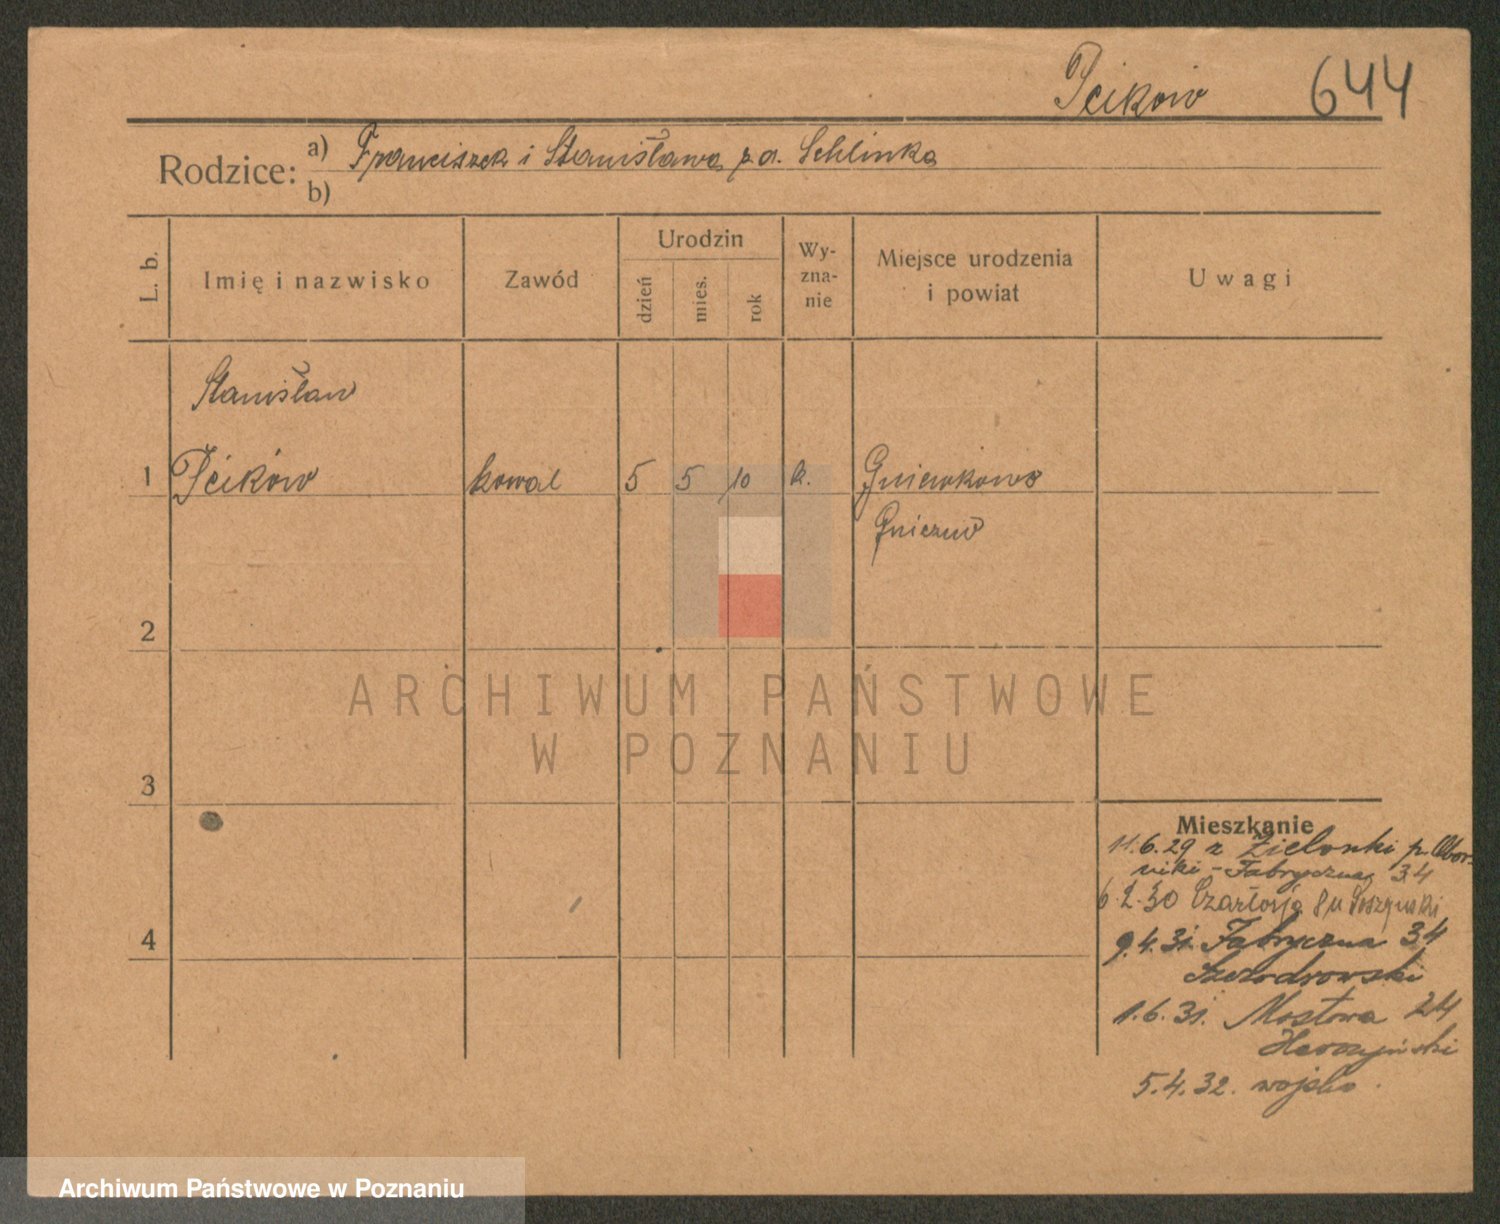 Pcikow 644
Rodzice: a) Franciszek i Stanisława z d. Schlinka
b)
L. b. Imię i nazwisko Zawód Urodzin dzień mies. rok Wyznanie Miejsce urodzenia i powiat Uwagi
Stanisław
1 Pcików kowal 5 5 10 k. Gniewkowo
Gniezno
2
ARCHIWUM PAŃSTWOWE
W POZNANIU
3
Mieszkanie
11.6.29 z Zielonki p. Obor-
niki - Fabryczna 34
6.2.30 8 u
4
9.4.31. Fabryczna 34
1.6.31. Mostowa 24
5.4.32. wojsko.
Archiwum Państwowe w Poznaniu